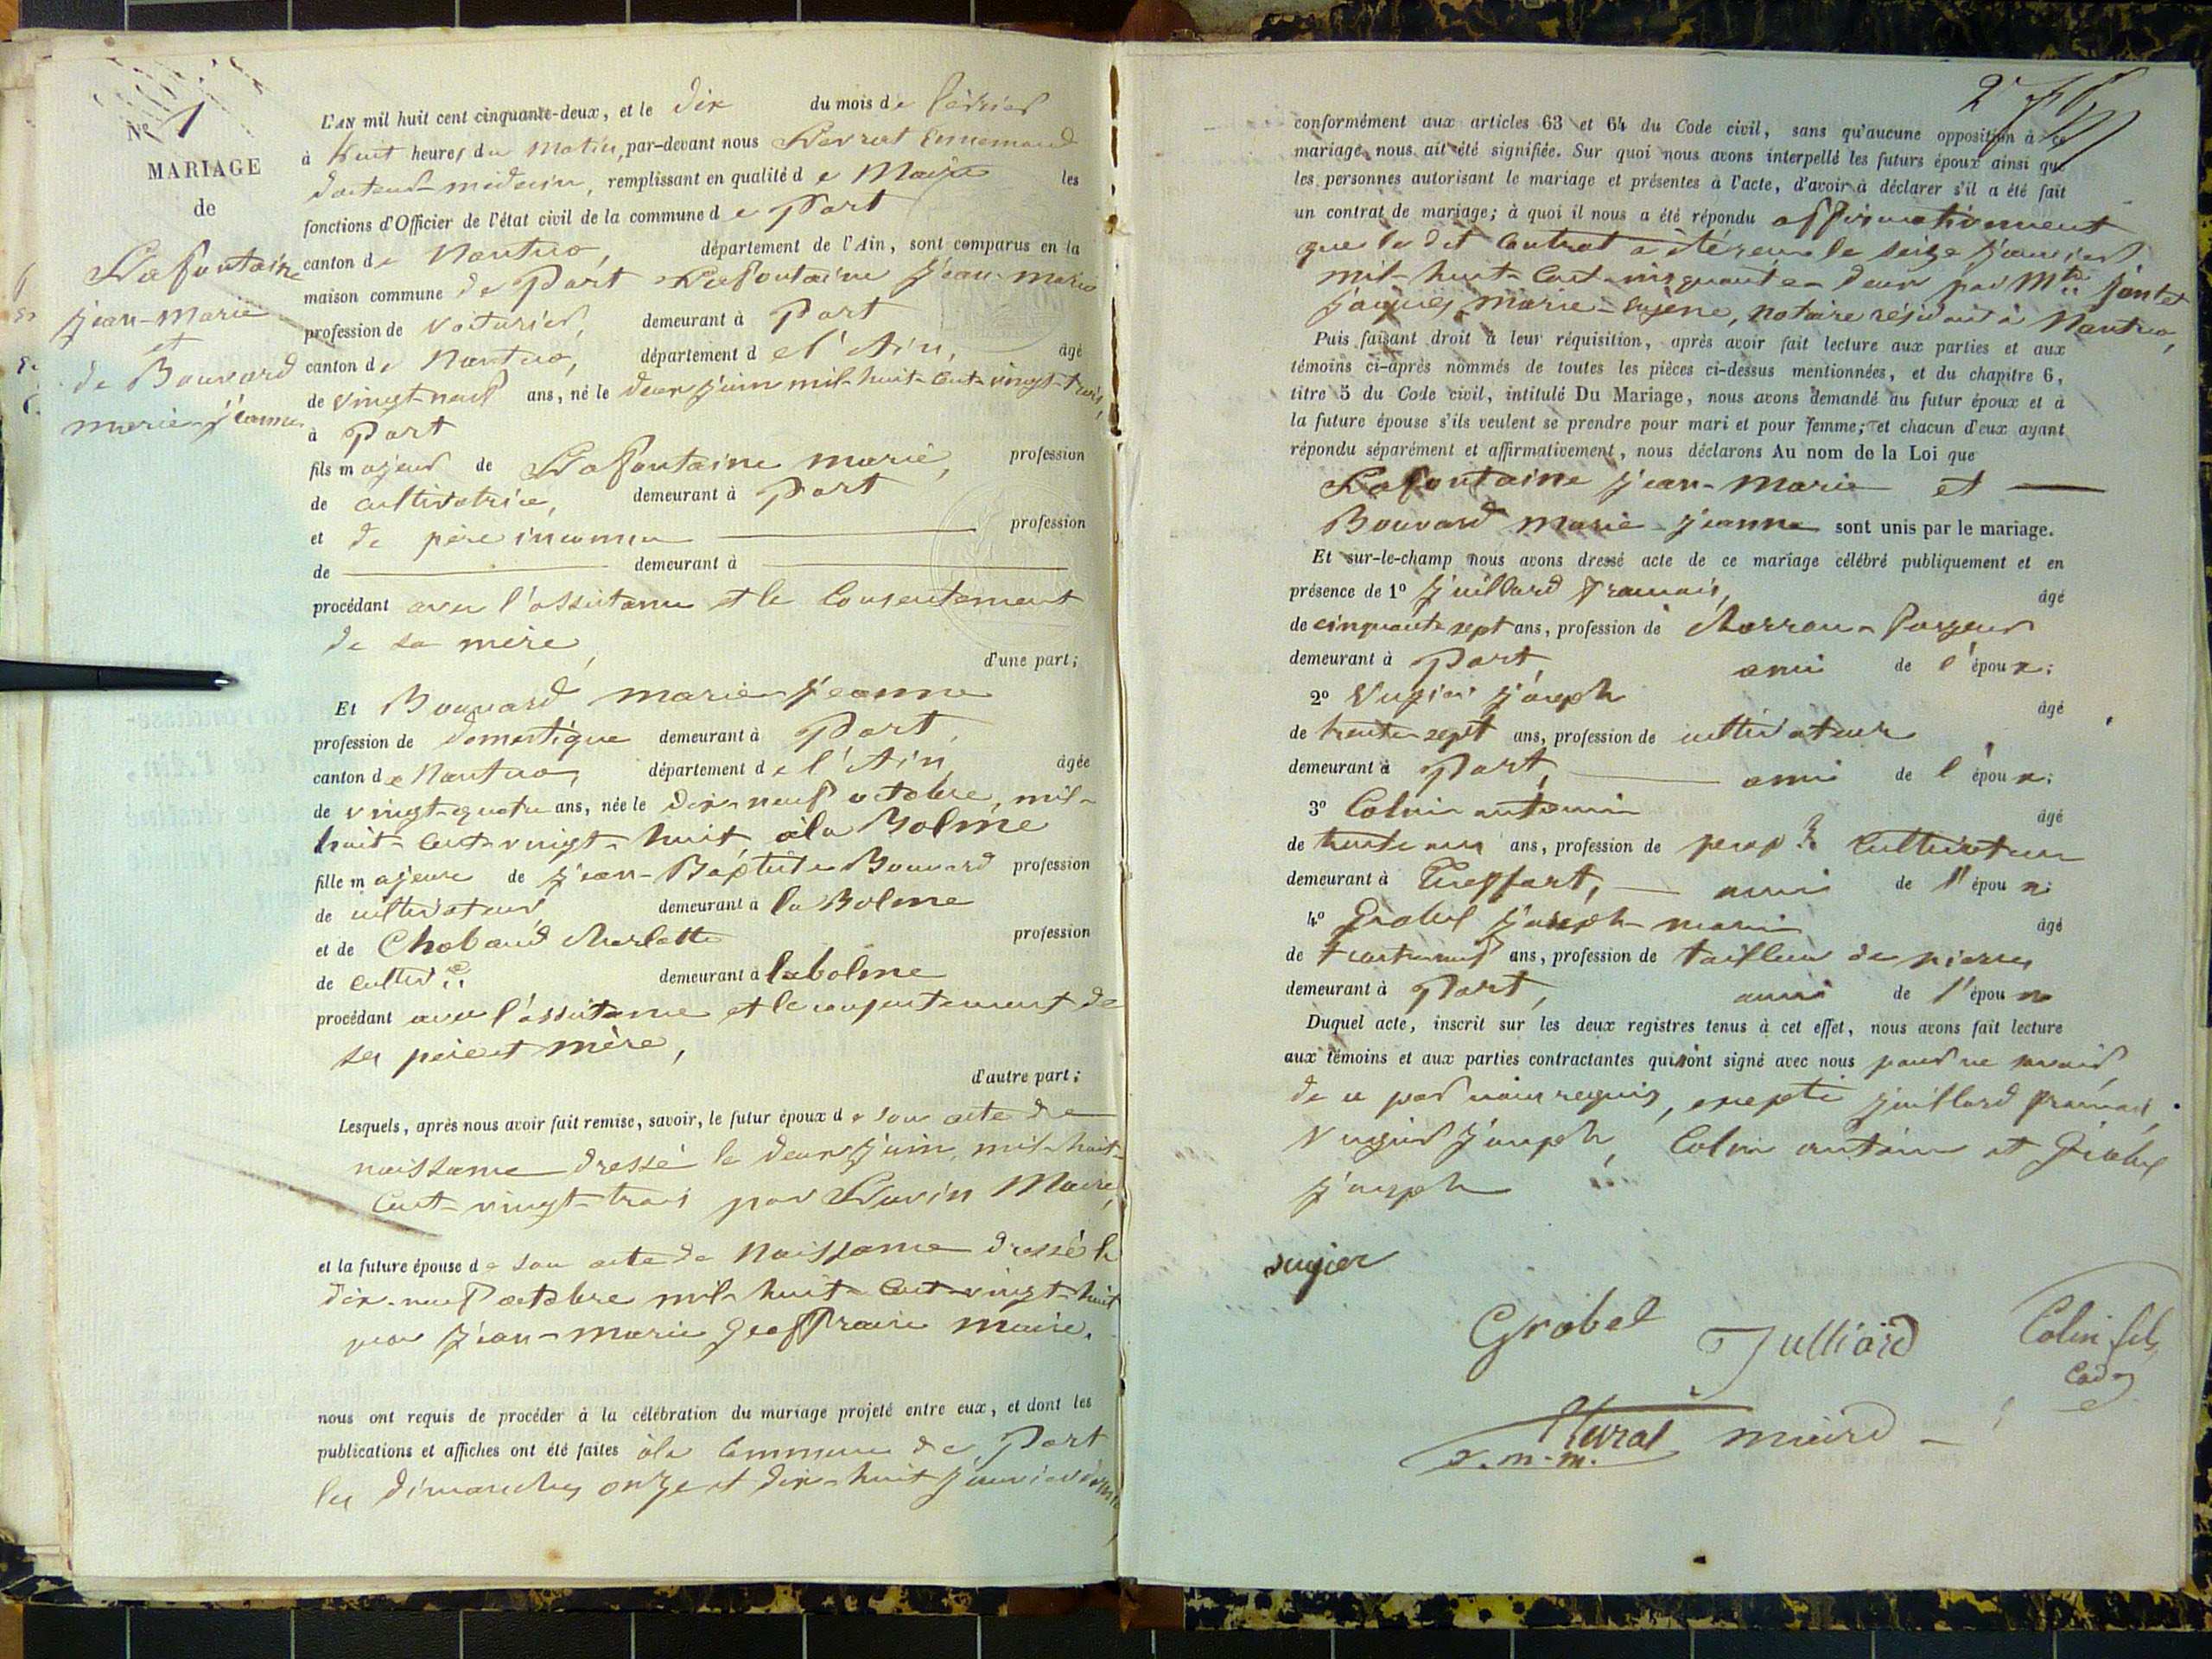 Nº 1
MARIAGE
de
Lafontaine
jean-Marie
et
de Bouvard
marie-jeanne
L'AN mil huit cent cinquante-deux, et le dix du mois de février
à huit heures du matin, par-devant nous Ennemond
docteur-médecin, remplissant en qualité de Maire les
fonctions d'Officier de l'état civil de la commune de Port
canton de Nantua, département de l'Ain, sont comparus en la
maison commune de Port Lafontaine jean-marie
profession de voiturier, demeurant à Port
canton de Nantua, département de l'Ain, âgé
de vingt-neuf ans, né le deux juin mil-huit-cent-vingt-trois,
à Port
fils majeur de Lafontaine marie, profession
de cultivatrice, demeurant à Port
et de père inconnu profession
de demeurant à
procédant avec l'assistance et le consentement
de sa mère, d'une part;
Et Bouvard marie-jeanne
profession de domestique demeurant à Port,
canton de Nantua, département de l'Ain âgée
de vingt-quatre ans, née le dix-neuf octobre, mil-
huit-cent-vingt-huit, à la Balme
fille majeure de jean-Baptiste Bouvard profession
de cultivateur, demeurant à la Balme
et de Chabaud charlotte profession
de cultiv.ce demeurant à la balme
procédant avec l'assistance et le consentement de
ses père et mère,
d'autre part;
Lesquels, après nous avoir fait remise, savoir, le futur époux de son acte de
naissance dressé le deux juin, mil-huit-
cent-vingt-trois par Maire,
et la future épouse de son acte de naissance dressé le
dix-neuf octobre mil-huit-cent-vingt-huit
par jean-marie maire.
nous ont requis de procéder à la célébration du mariage projeté entre eux, et dont les
publications et affiches ont été faites à la commune de Port
les dimanches onze et dix-huit janvier
2
conformément aux articles 63 et 64 du Code civil, sans qu'aucune opposition à ce
mariage nous ait été signifiée. Sur quoi nous avons interpellé les futurs époux ainsi que
les personnes autorisant le mariage et présentes à l'acte, d'avoir à déclarer s'il a été fait
un contrat de mariage; à quoi il nous a été répondu affirmativement
que le dit contrat a été reçu le seize janvier
mil-huit-cent-cinquante-deux par Mtre jantet
jacques, marie-eugène, notaire résidant à Nantua,
Puis faisant droit à leur réquisition, après avoir fait lecture aux parties et aux
témoins ci-après nommés de toutes les pièces ci-dessus mentionnées, et du chapitre 6,
titre 5 du Code civil, intitulé Du Mariage, nous avons demandé au futur époux et à
la future épouse s'ils veulent se prendre pour mari et pour femme; et chacun d'eux ayant
répondu séparément et affirmativement, nous déclarons Au nom de la Loi que
Lafontaine jean-marie et
Bouvard marie-jeanne sont unis par le mariage.
Et sur-le-champ nous avons dressé acte de ce mariage célébré publiquement et en
présence de 1º juillard françois, âgé
de cinquante sept ans, profession de
demeurant à Port, ami de l'époux;
2º Vugier joseph âgé
de trente-sept ans, profession de cultivateur
demeurant à Port, ami de l'époux;
3º Colin antoine âgé
de ans, profession de prop.re cultivateur
demeurant à ami de l'époux;
4º Grobel joseph-marie âgé
de ans, profession de tailleur de pierres
demeurant à Port, ami de l'époux
Duquel acte, inscrit sur les deux registres tenus à cet effet, nous avons fait lecture
aux témoins et aux parties contractantes qui ont signé avec nous pour ne savoir,
de ce par nous requis, excepté juillard françois,
vugier joseph, Colin antoine et Grobel
joseph
vugier
Grobel
Julliard
Colin fils
cad
maire
d.m.m.